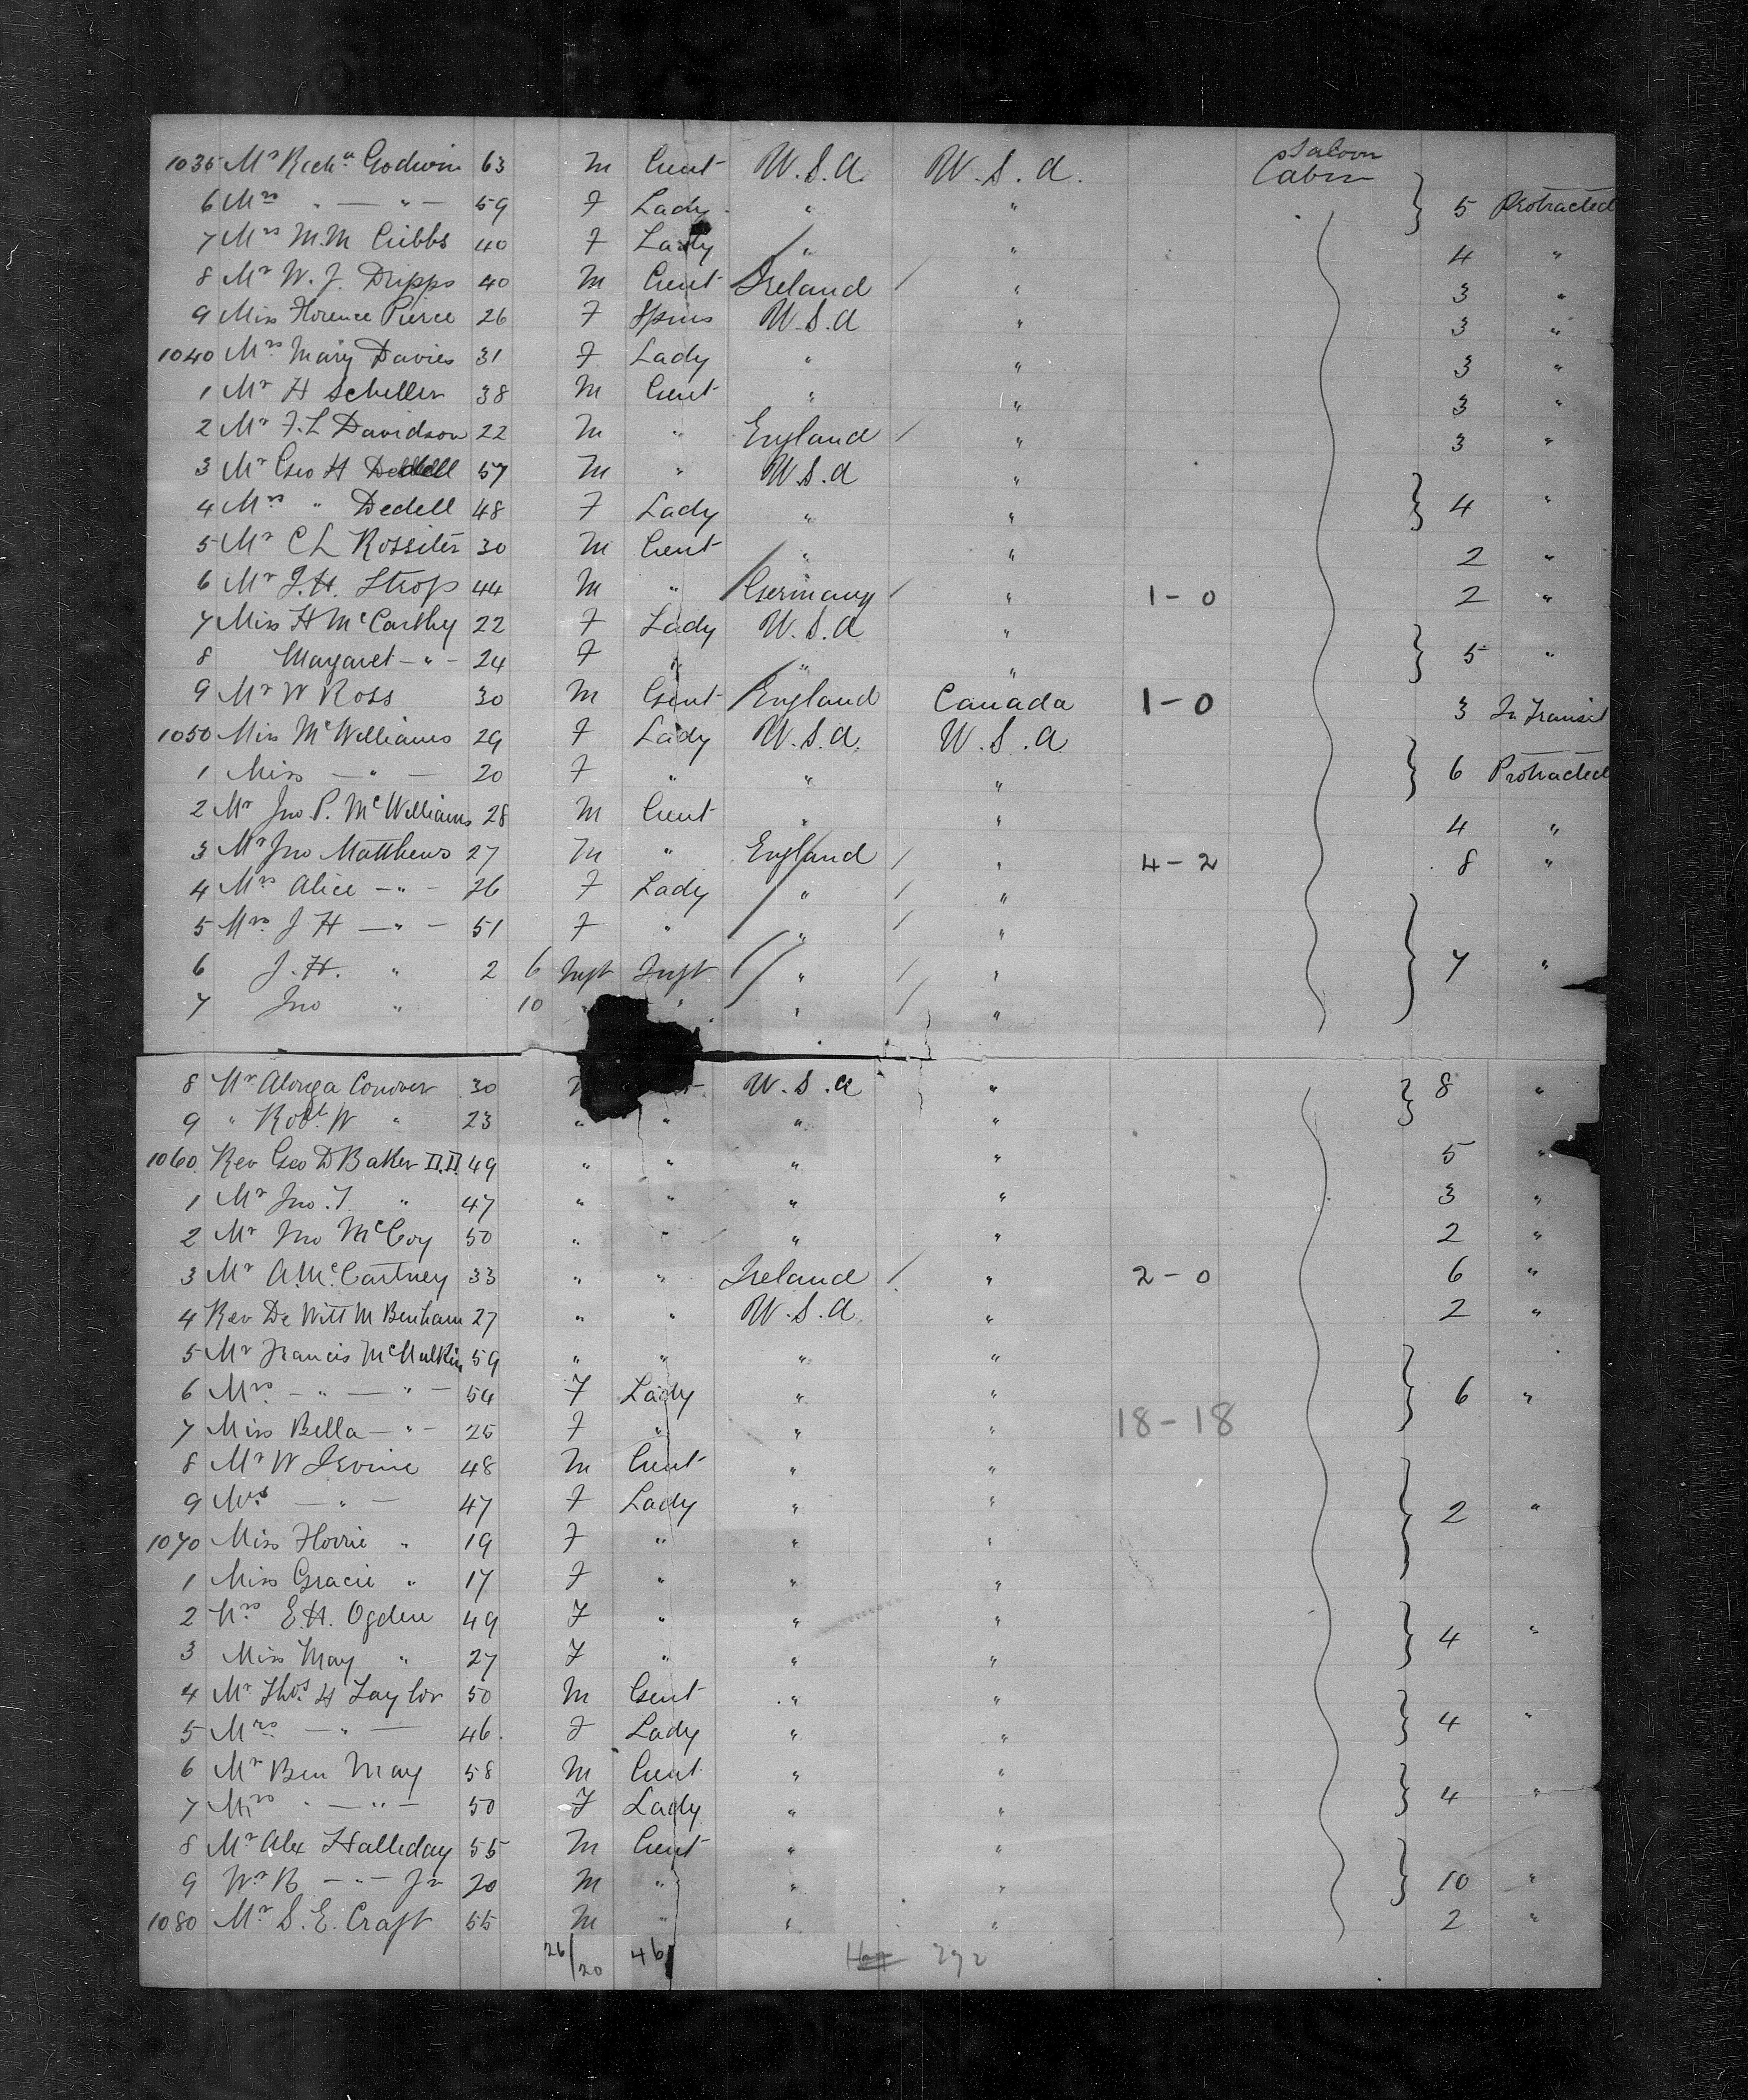 1035 Mr Richd Godwin 63 M Gent U.S.A. U.S.A. Saloon Cabin
6 Mrs " — " — 59 F Lady " " 5 Protracted
7 Mrs M.M Cribbs 40 F Lady " " 4 "
8 Mr W. J. Dripps 40 M Gent Ireland / " 3 "
9 Miss Florence Pierce 26 F Spins U.S.A " 3 "
1040 Mrs Mary Davies 31 F Lady " " 3 "
1 Mr H Scheller 38 M Gent " " 3 "
2 Mr F.L Davidson 22 M " England / " 3 "
3 Mr Geo H Dedell 57 M " U.S.A "
4 Mrs " Dedell 48 F Lady " " 4 "
5 Mr C L Rossiter 30 M Gent " " 2 "
6 Mr J.H. Strop 44 M " Germany / " 1-0 2 "
7 Miss H McCarthy 22 F Lady U.S.A "
8 Margaret — " — 24 F " " " 5 "
9 Mr W Ross 30 M Gent England Canada 1-0 3 In Transit
1050 Miss McWilliams 29 F Lady U.S.A. U.S.A
1 Miss — " — 20 F " " " 6 Protracted
2 Mr Jno P. McWilliams 28 M Gent " " 4 "
3 Mr Jno Matthews 27 M " England / " 4-2 8 "
4 Mrs Alice — " — 26 F Lady " / "
5 Mrs J H — " — 51 F " " / "
6 J.H. " 2 6 Inft Inft " / " 7 "
7 Jno " 10 " " / "
8 Mr Alonza Conover 30 U.S.A " 8 "
9 " Robt W " 23 " " " "
1060 Rev Geo D Baker D.D. 49 " " " " 5 "
1 Mr Jno. T " 47 " " " " 3 "
2 Mr Jno McCoy 50 " " " " 2 "
3 Mr A. McCartney 33 " " Ireland / " 2-0 6 "
4 Rev De Witt M Benham 27 " " U.S.A. " 2 "
5 Mr Francis McMulkin 59 " " " "
6 Mrs — " — " — 54 F Lady " " 6 "
7 Miss Bella — " — 25 F " " " 18-18
8 Mr W Irvine 48 M Gent " "
9 Mrs — " — 47 F Lady " " 2 "
1070 Miss Florrie " 19 F " " "
1 Miss Gracie " 17 F " " "
2 Mrs E.H. Ogden 49 F " " "
3 Miss May " 27 F " " " 4 "
4 Mr Thos H Taylor 50 M Gent " "
5 Mrs — " — 46 F Lady " " 4 "
6 Mr Ben May 58 M Gent " "
7 Mrs " — " — 50 F Lady " " 4 "
8 Mr Alex Halliday 55 M Gent " "
9 — " — Jr 20 M " " " 10 "
1080 Mr S. E. Craft 55 M " " " 2 "
26/20 46 292